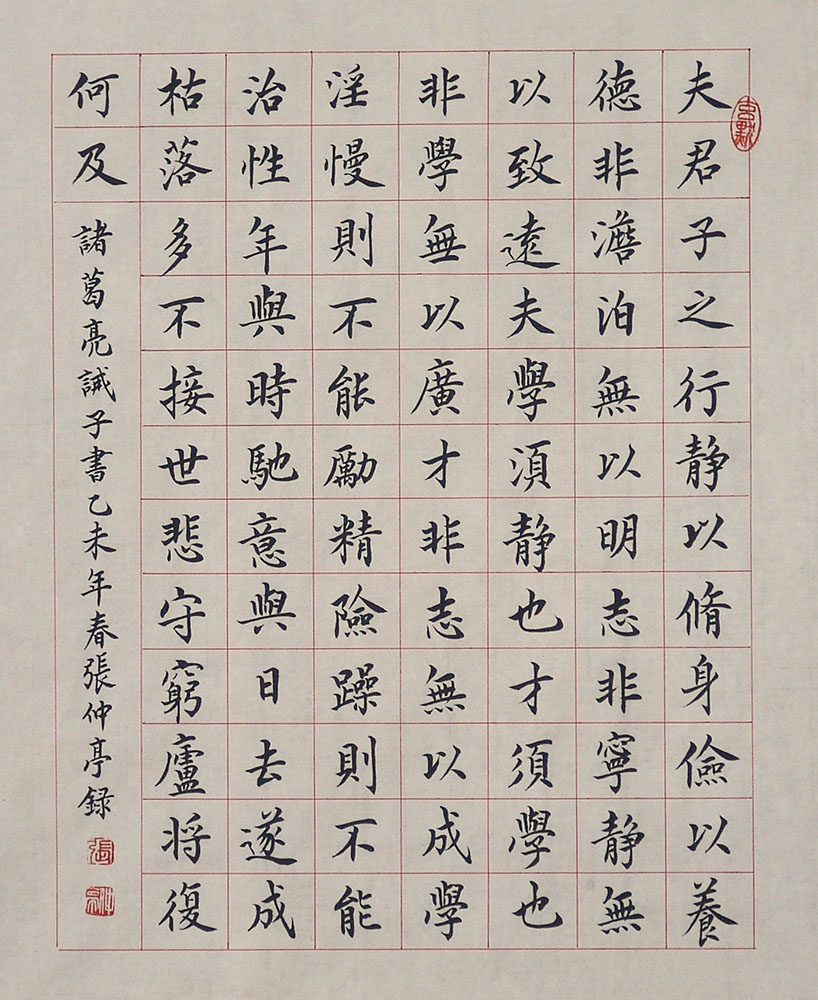 夫君子之行静以脩身儉以養
德非澹泊無以明志非寧静無
以致遠夫學須静也才須學也
非學無以廣才非志無以成學
淫慢則不能勵精險躁則不能
治性年與時馳意與日去遂成
枯落多不接世悲守窮廬将復
何及
諸葛亮誡子書乙未年春張仲亭録